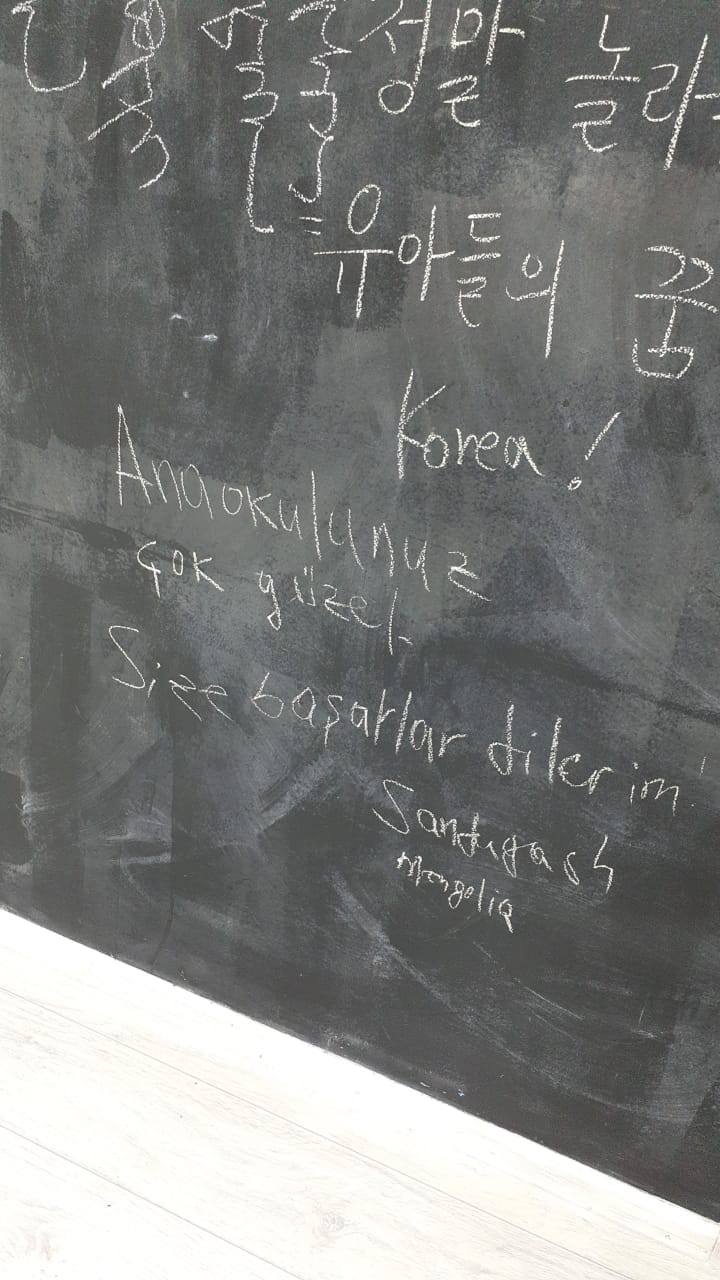 정말 놀라
유아들의 꿈
Korea!
Anaokulunuz
çok güzel.
Size başarılar dilerim!
Santugash
Mongolia